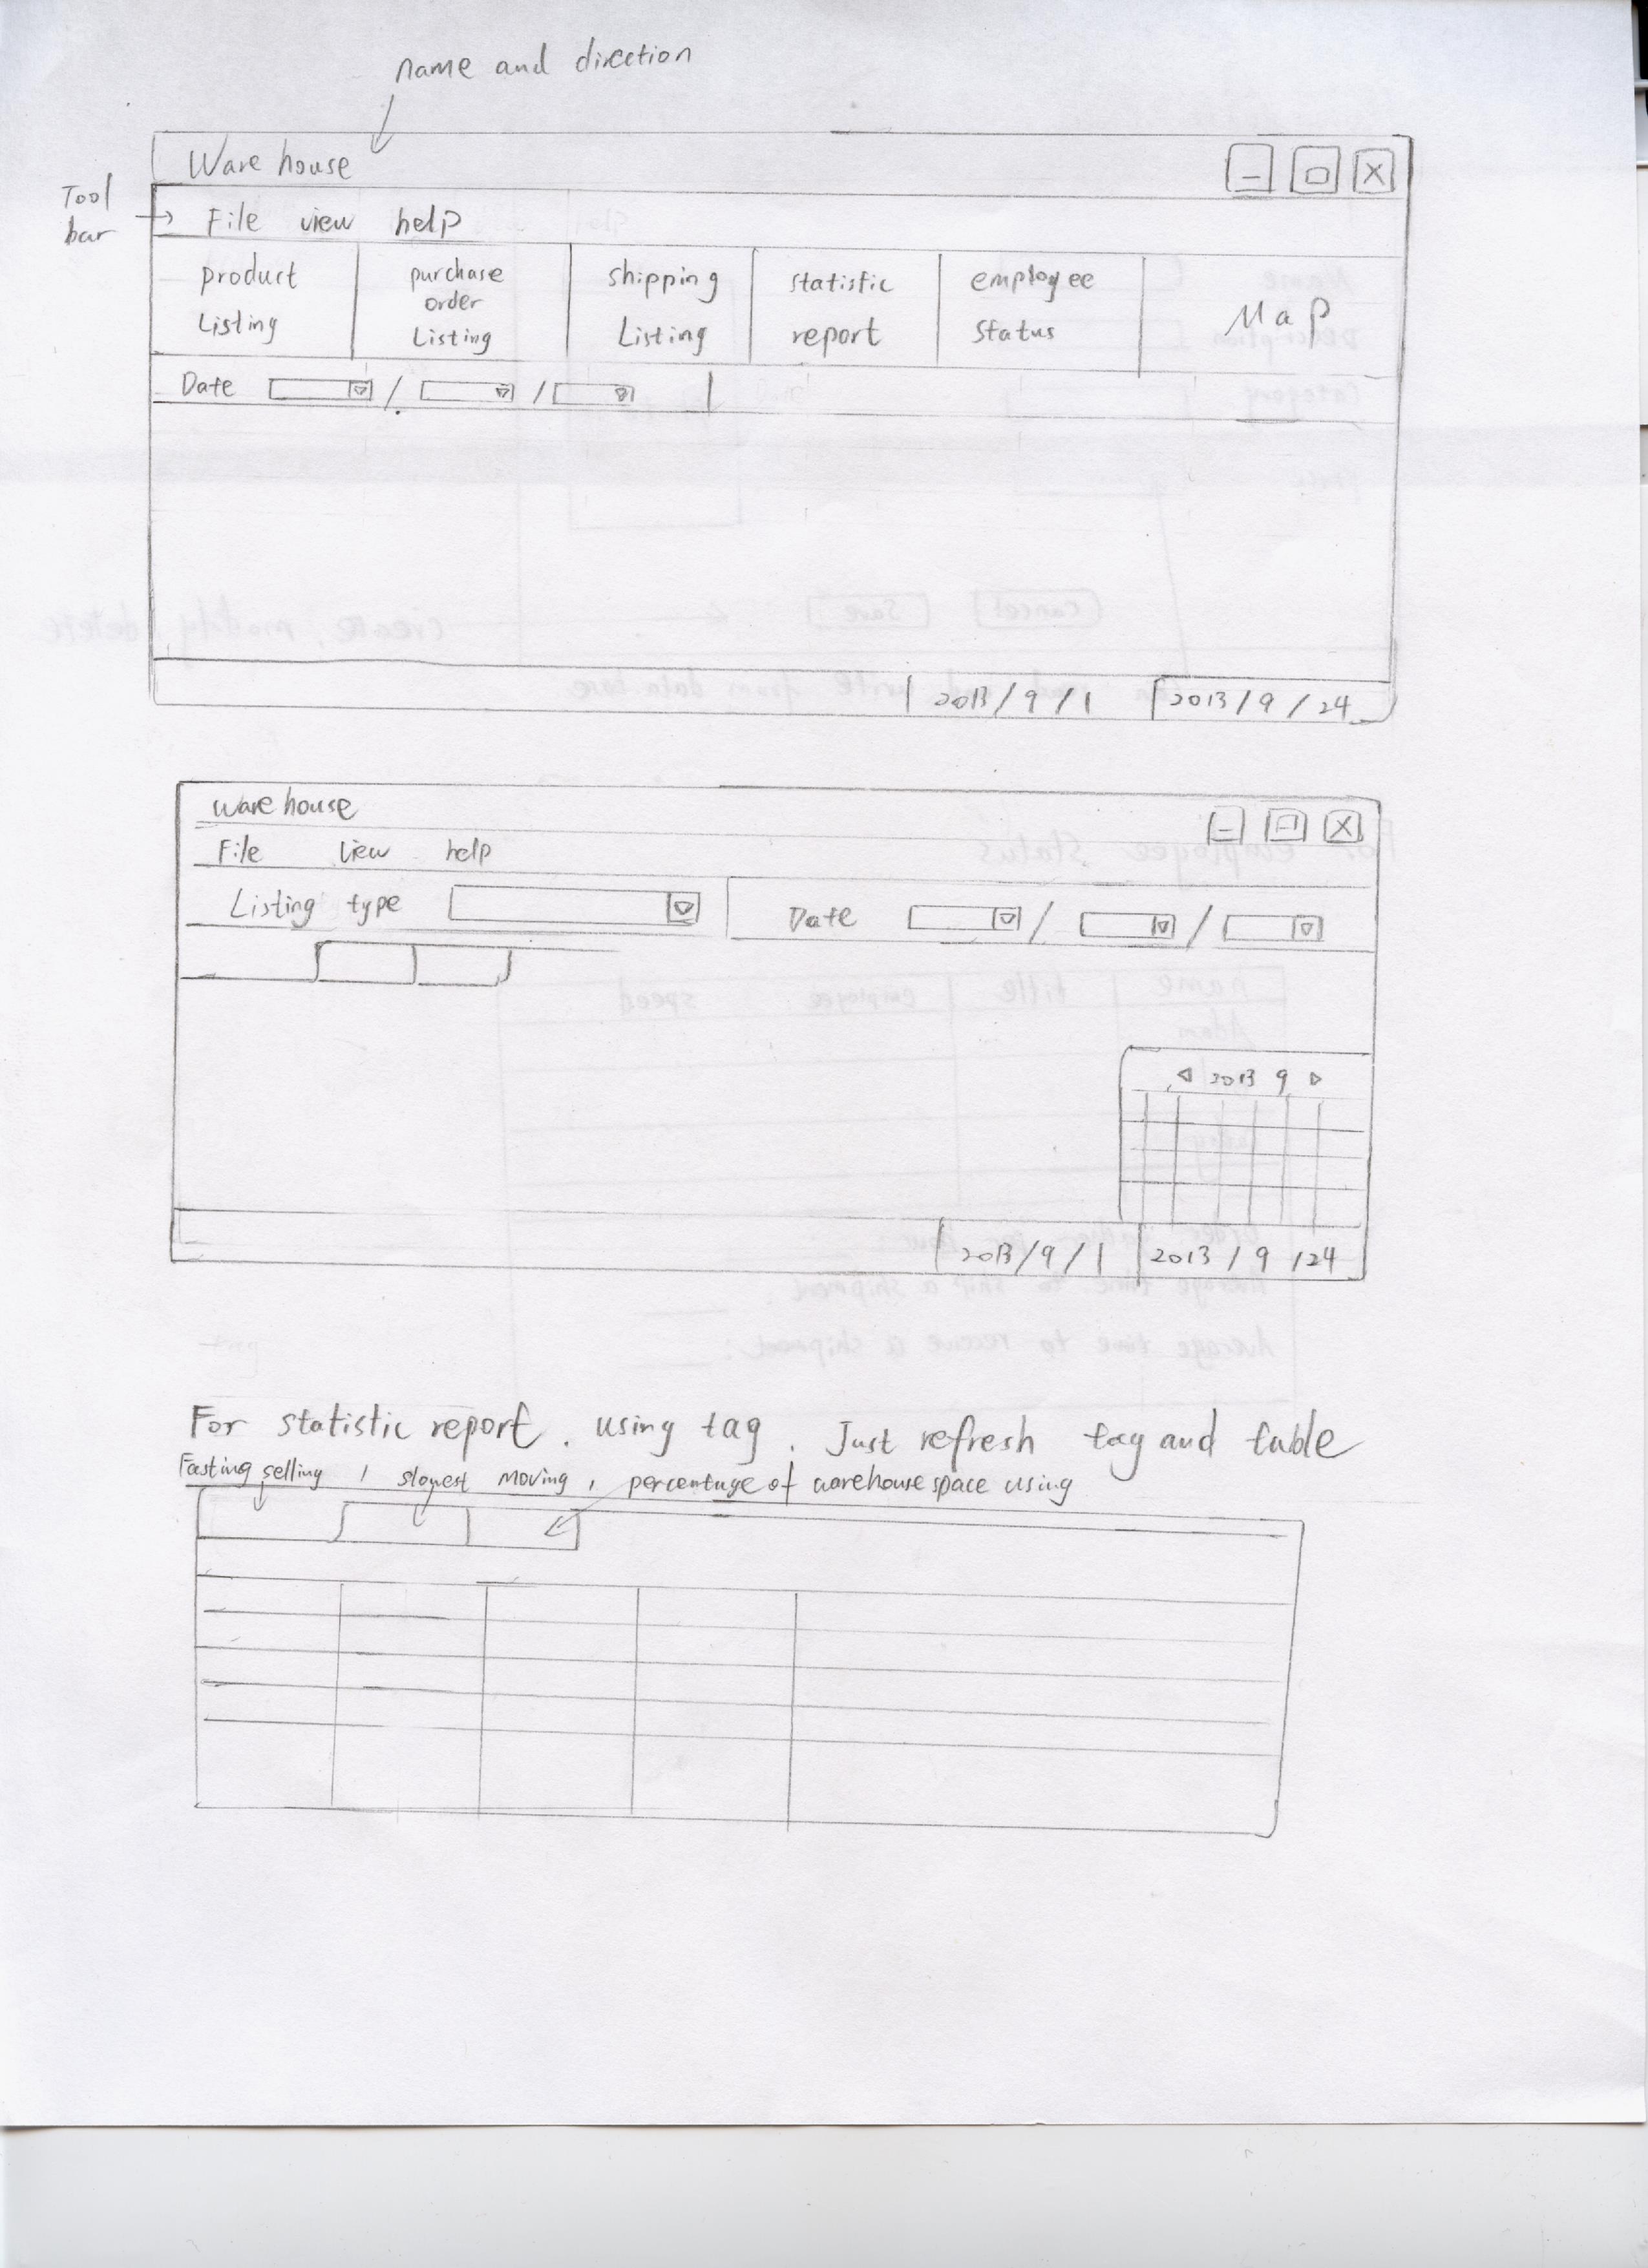 name and direction
Ware house
Tool
bar
File view help
product
Listing
purchase
order
Listing
shipping
Listing
statistic
report
employee
Status
Map
Date / /
2013/9/1
2013/9/24
warehouse
File view help
Listing type
Date / /
2013 9
2013/9/1
2013/9/24
For statistic report. using tag. Just refresh tag and table
Fasting selling, slowest moving, percentage of warehouse space using